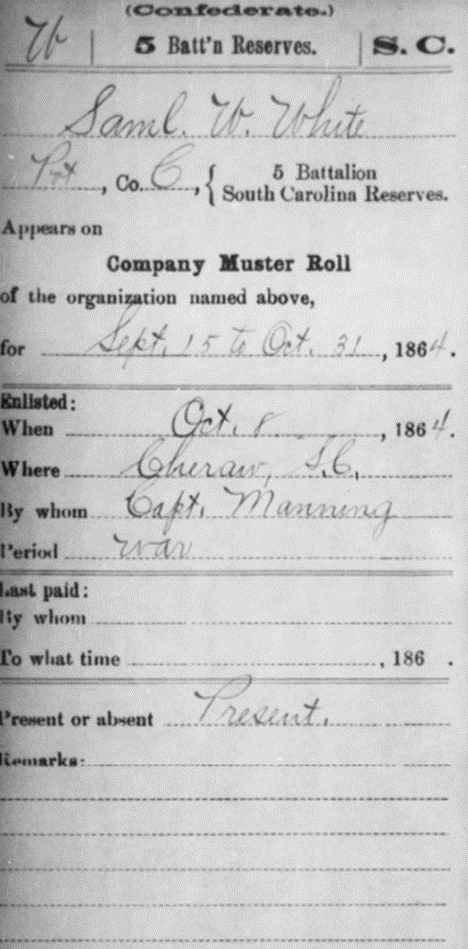 (Confederate.)
W | 5 Batt'n Reserves. | S. C.
Saml. W. White
Pvt, Co. C, { 5 Battalion
South Carolina Reserves.
Appears on
Company Muster Roll
of the organization named above,
for Sept. 15 to Oct. 31, 1864.
Enlisted:
When Oct. 8, 1864.
Where Cheraw, S.C.
By whom Capt. Manning
Period war
Last paid:
By whom
To what time , 186 .
Present or absent Present.
Remarks: